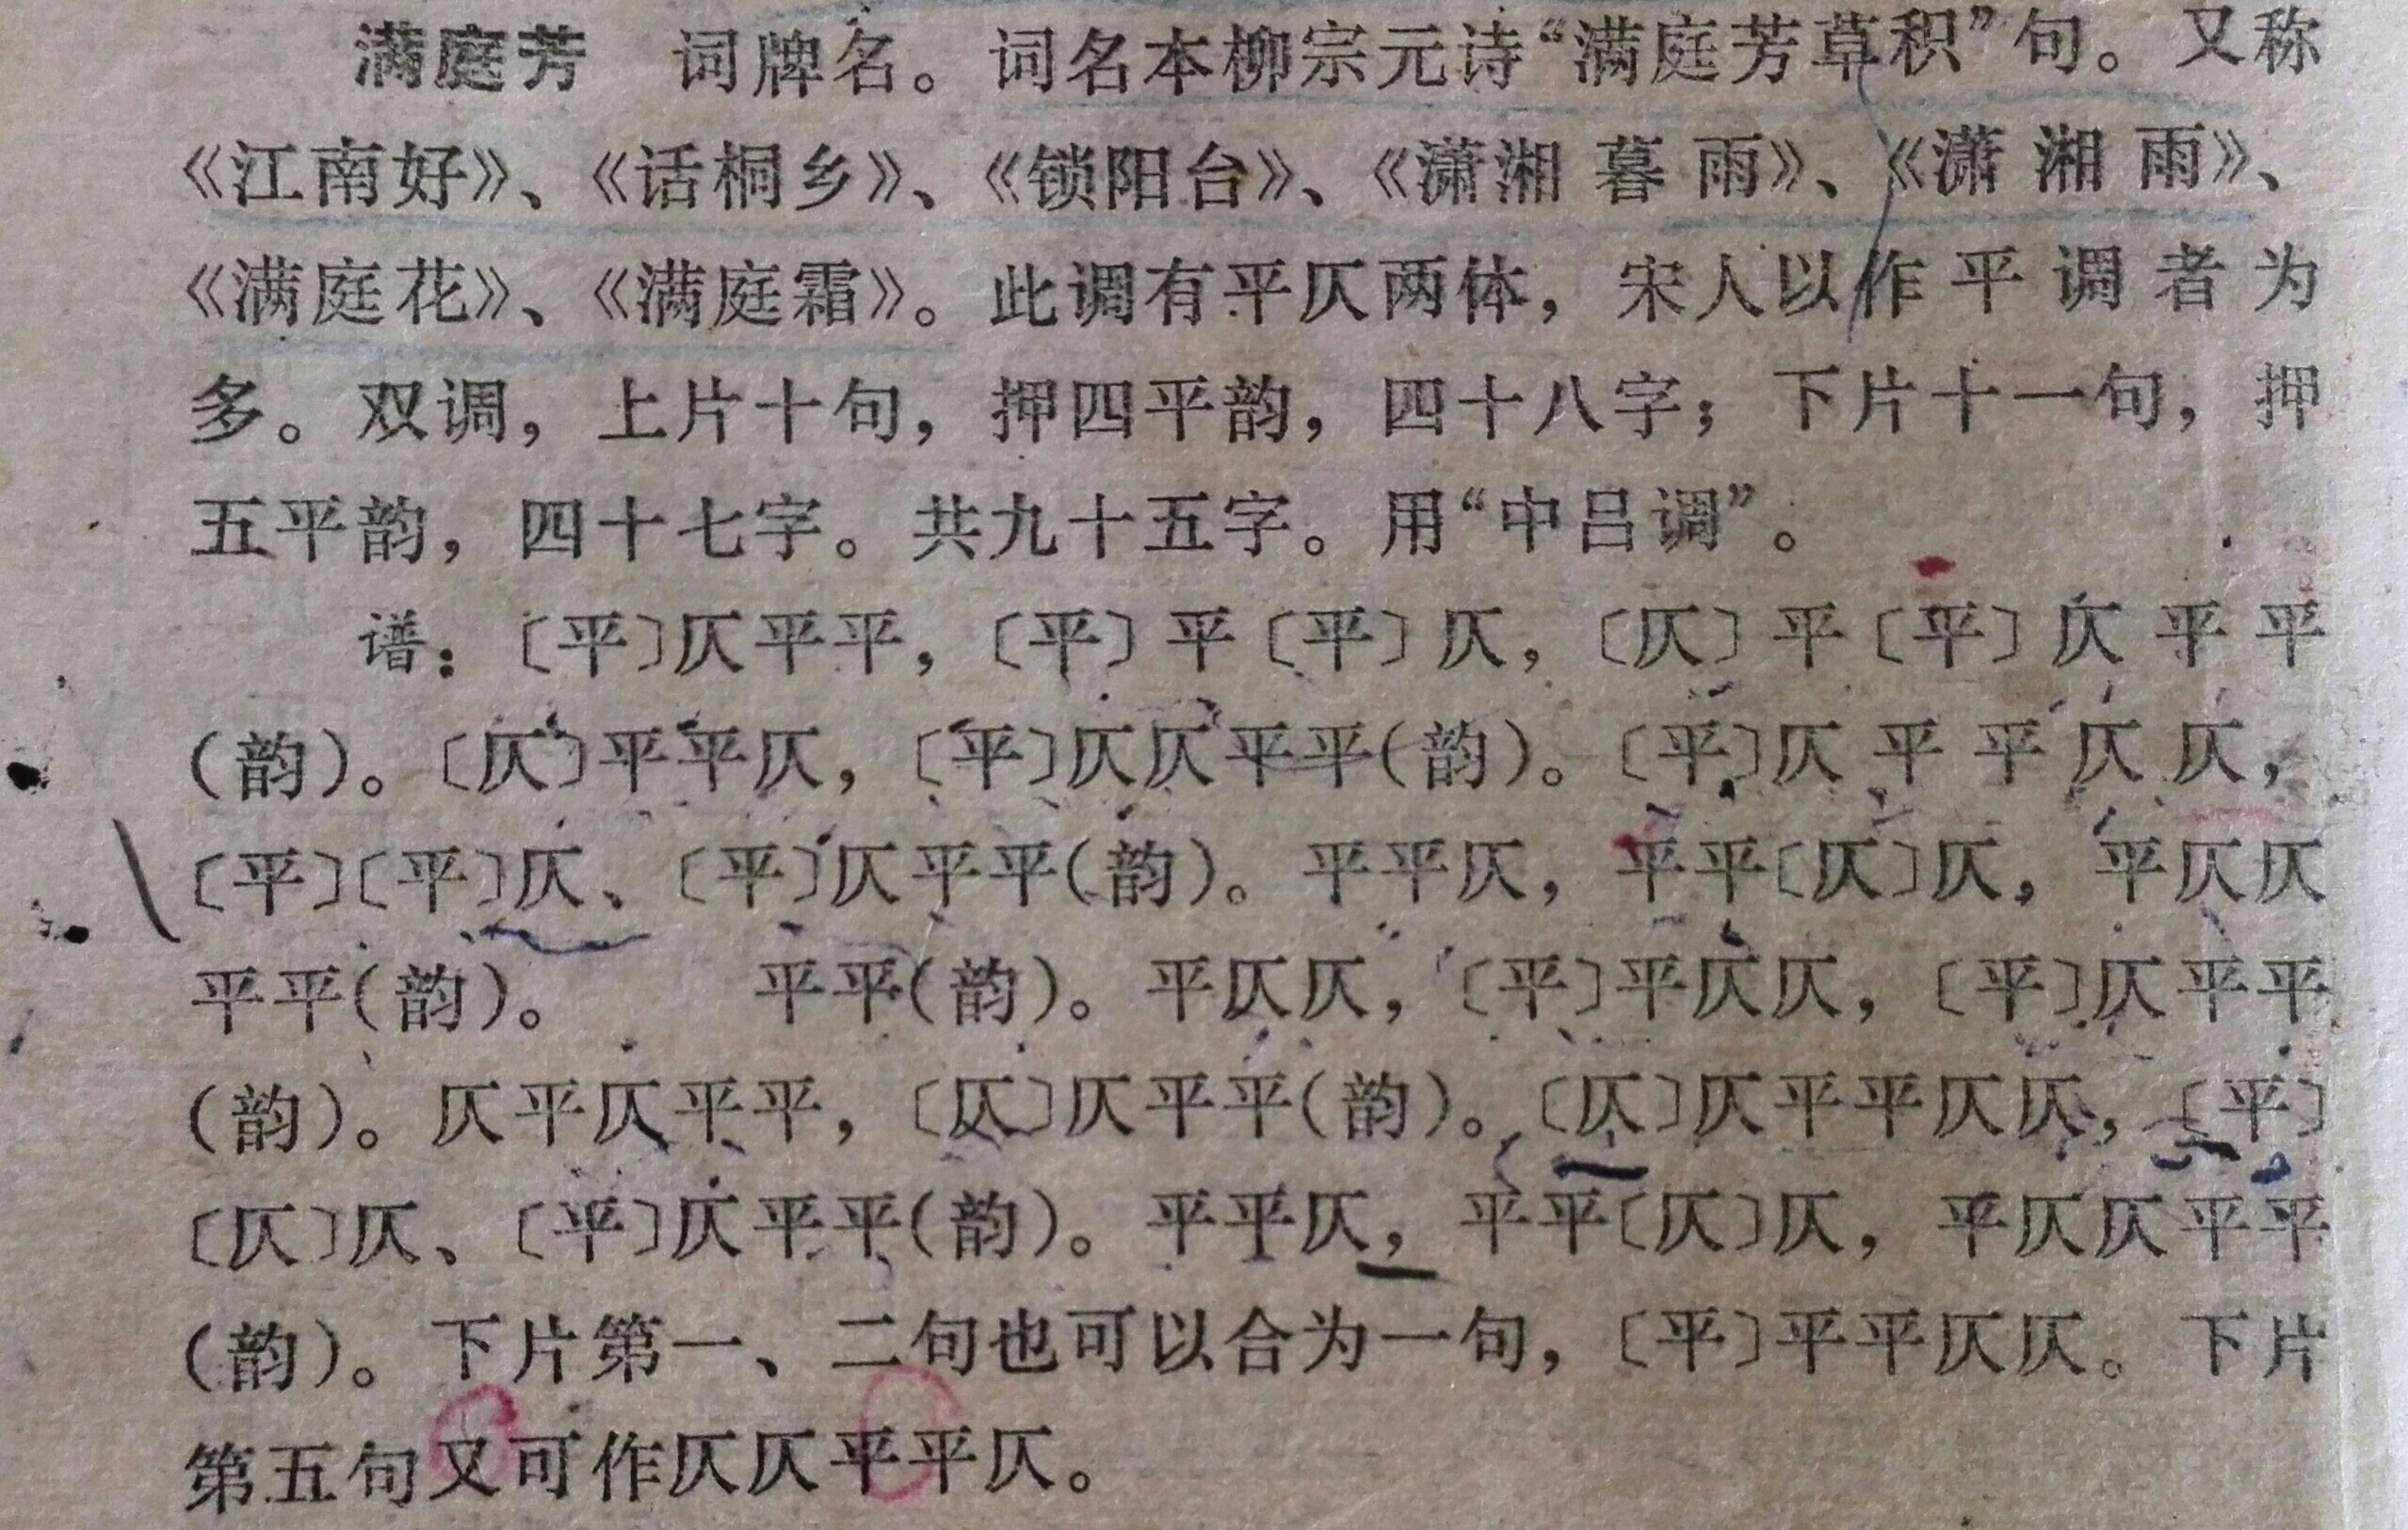 满庭芳 词牌名。词名本柳宗元诗“满庭芳草积”句。又称
《江南好》、《话桐乡》、《锁阳台》、《潇湘暮雨》、《潇湘雨》、
《满庭花》、《满庭霜》。此调有平仄两体，宋人以作平调者为
多。双调，上片十句，押四平韵，四十八字；下片十一句，押
五平韵，四十七字。共九十五字。用“中吕调”。
谱：〔平〕仄平平，〔平〕平〔平〕仄，〔仄〕平〔平〕仄平平
（韵）。〔仄〕平平仄，〔平〕仄仄平平（韵）。〔平〕仄平平仄仄，
〔平〕〔平〕仄、〔平〕仄平平（韵）。平平仄，平平〔仄〕仄，平仄仄
平平（韵）。 平平（韵）。平仄仄，〔平〕平仄仄，〔平〕仄平平
（韵）。仄平仄平平，〔仄〕仄平平（韵）。〔仄〕仄平平仄仄，〔平〕
〔仄〕仄、〔平〕仄平平（韵）。平平仄，平平〔仄〕仄，平仄仄平平
（韵）。下片第一、二句也可以合为一句，〔平〕平平仄仄。下片
第五句又可作仄仄平平仄。